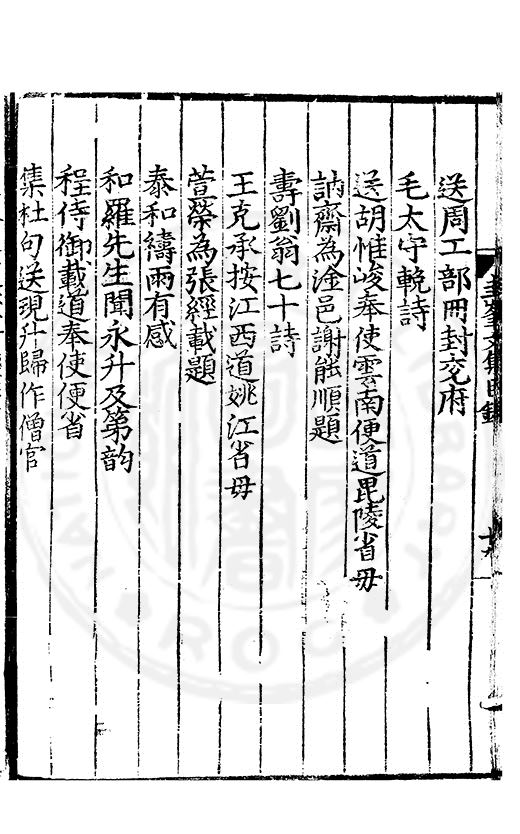 送周工部冊封交府
毛太守輓詩
送胡惟峻奉使雲南便道毘陵省母
訥齋為淦邑謝能順題
壽劉翁七十詩
王克承按江西道姚江省母
萱榮為張經載題
泰和禱雨有感
和羅先生聞永升及第韵
程侍御載道奉使便省
集杜句送現升歸作僧官